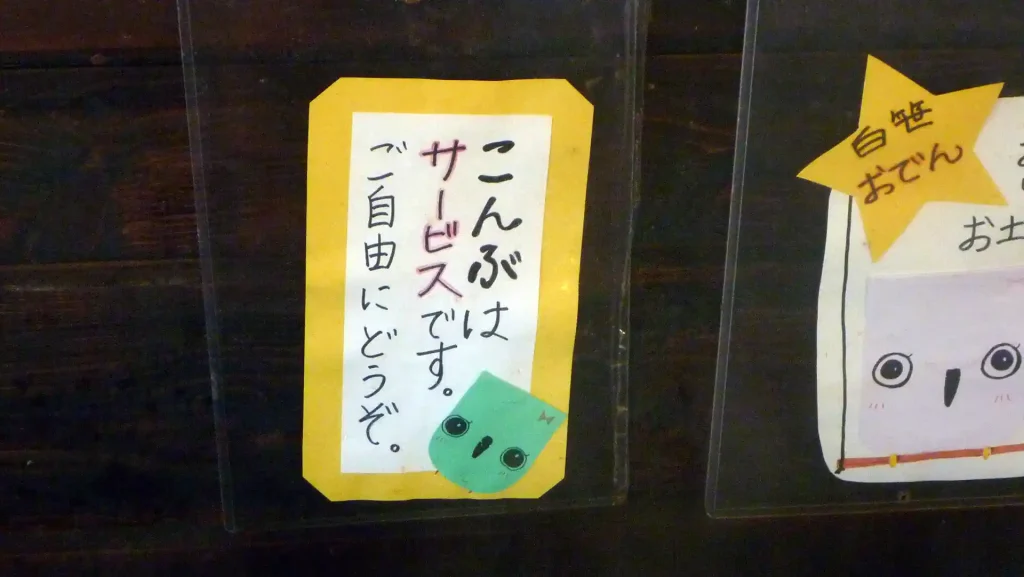 こんぶは
サービスです。
ご自由にどうぞ。
白笹
おでん
お土